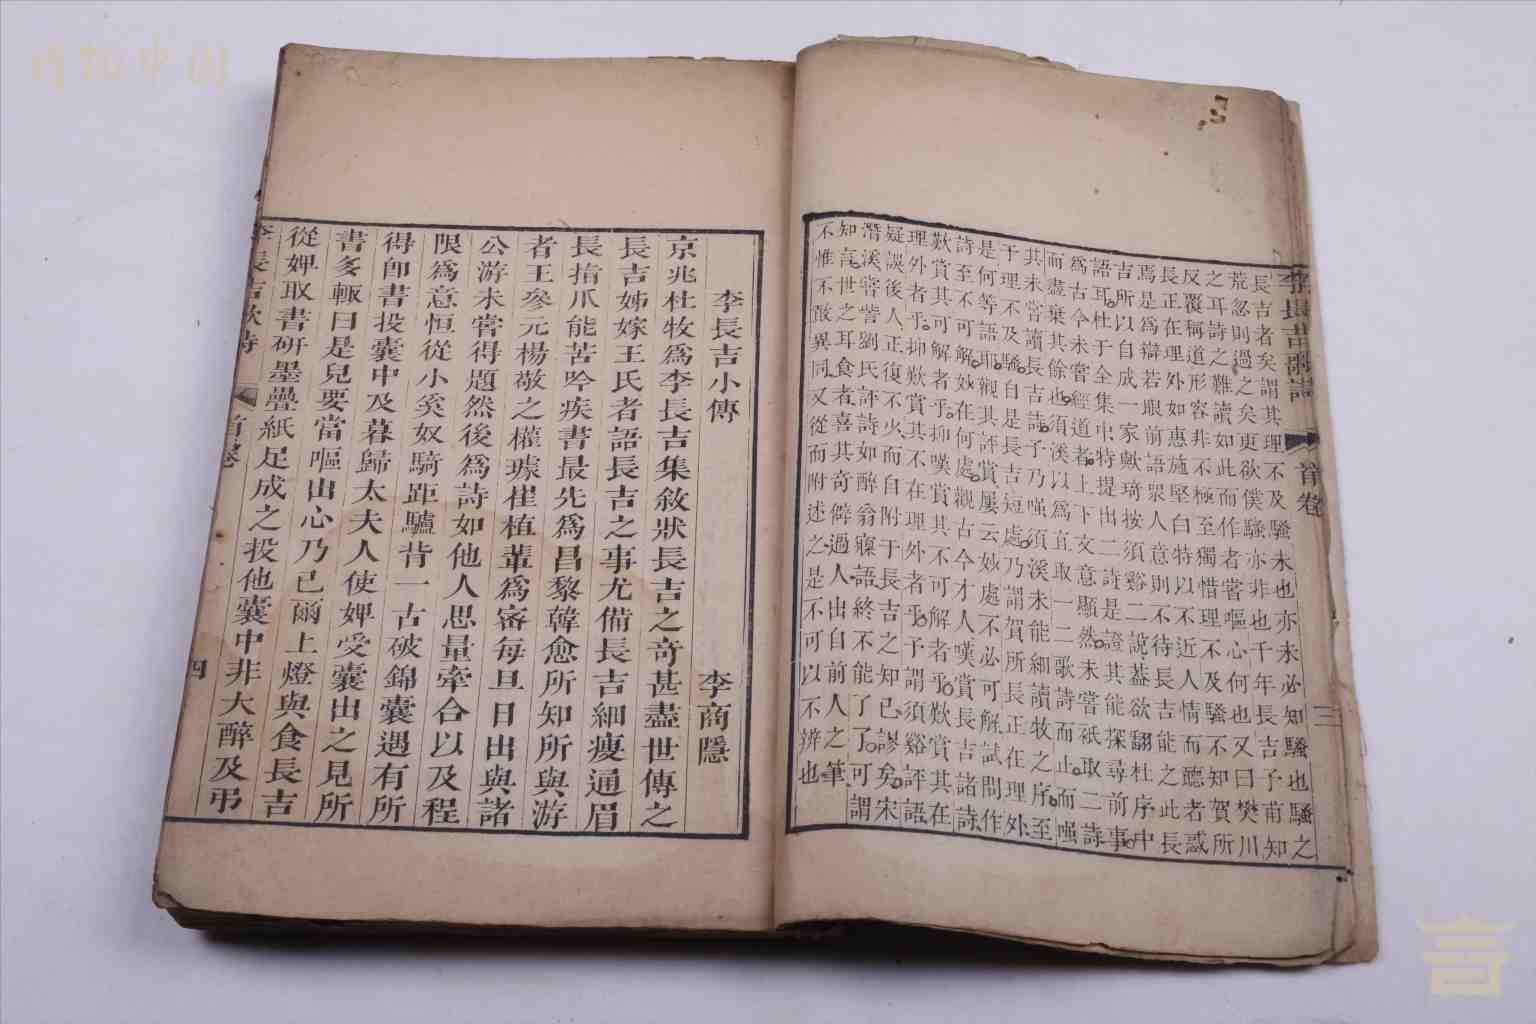 李長吉歌詩 首卷 三
長吉者矣謂其理不及騷未也亦未必知騷也騷之
荒忽則過之矣更欲僕騷亦非也千年長吉予甫知
之耳詩之難讀如此而作者嘗嘔心何也又曰樊川
反覆稱道形容非不極至獨惜理不及騷不知賀所
長正在理外如惠施堅白特以不近人情而聽者惑
焉是爲辯若眼前語眾人意則不待長吉能之此長
吉所以自成一家歟琦按須谿二說葢欲翻杜序中
語耳杜于全集中特提出二詩是證其能探尋前事
爲古今未嘗經道者上下文意顯然未嘗祇取二詩
而盡棄其餘也須溪以爲直取一二歌詩而止而嗤
其未嘗讀長吉詩予乃嗤須溪未能細讀牧之序至
于理不及騷自是長吉短處乃謂賀所長正在理外
是何等語耶觀其評賞屢云妙處不必可解試問作
詩至不可解妙在何處觀古今才人嘆賞長吉諸詩
歎賞其可解者乎抑嘆賞其不可解者乎歎賞其在
理外者乎抑歎賞其不在理外者乎予謂須谿評語
疑誤後人正復不少而自附于長吉之知己謬矣宋
潛溪嘗訾劉氏評詩如醉翁寱語終不能了了可謂
知言世之耳食者喜其奇僻過人出自前人之筆
不惟不敢異同又從而附述之是不可以不辨也
李長吉小傳 李商隱
京兆杜牧爲李長吉集敘狀長吉之奇甚盡世傳之
長吉姊嫁王氏者語長吉之事尤備長吉細瘦通眉
長指爪能苦吟疾書最先爲昌黎韓愈所知所與游
者王參元楊敬之權璩崔植輩爲密每旦日出與諸
公游未嘗得題然後爲詩如他人思量牽合以及程
限爲意恒從小奚奴騎距驢背一古破錦囊遇有所
得卽書投囊中及暮歸太夫人使婢受囊出之見所
書多輒曰是兒要當嘔出心乃已爾上燈與食長吉
從婢取書研墨疊紙足成之投他囊中非大醉及弔
李長吉歌詩 首卷 四